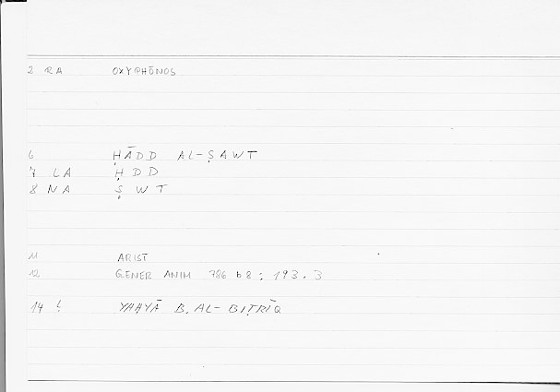 2 RA OXYPHŌNOS
6 ḤĀDD AL-ṢAWT
7 LA ḤDD
8 NA ṢWT
11 ARIST
12 GENER ANIM 786 b 8 : 193.3
14 YAḤYĀ B. AL-BIṬRĪQ